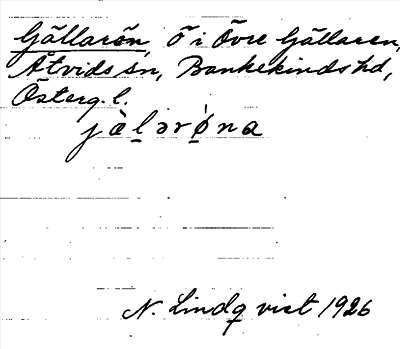 Gällarön, ö i Övre Gällaren,
Åtvids sn, Bankekinds hd,
Österg. l.
jàlarǿna
N. Lindqvist 1926